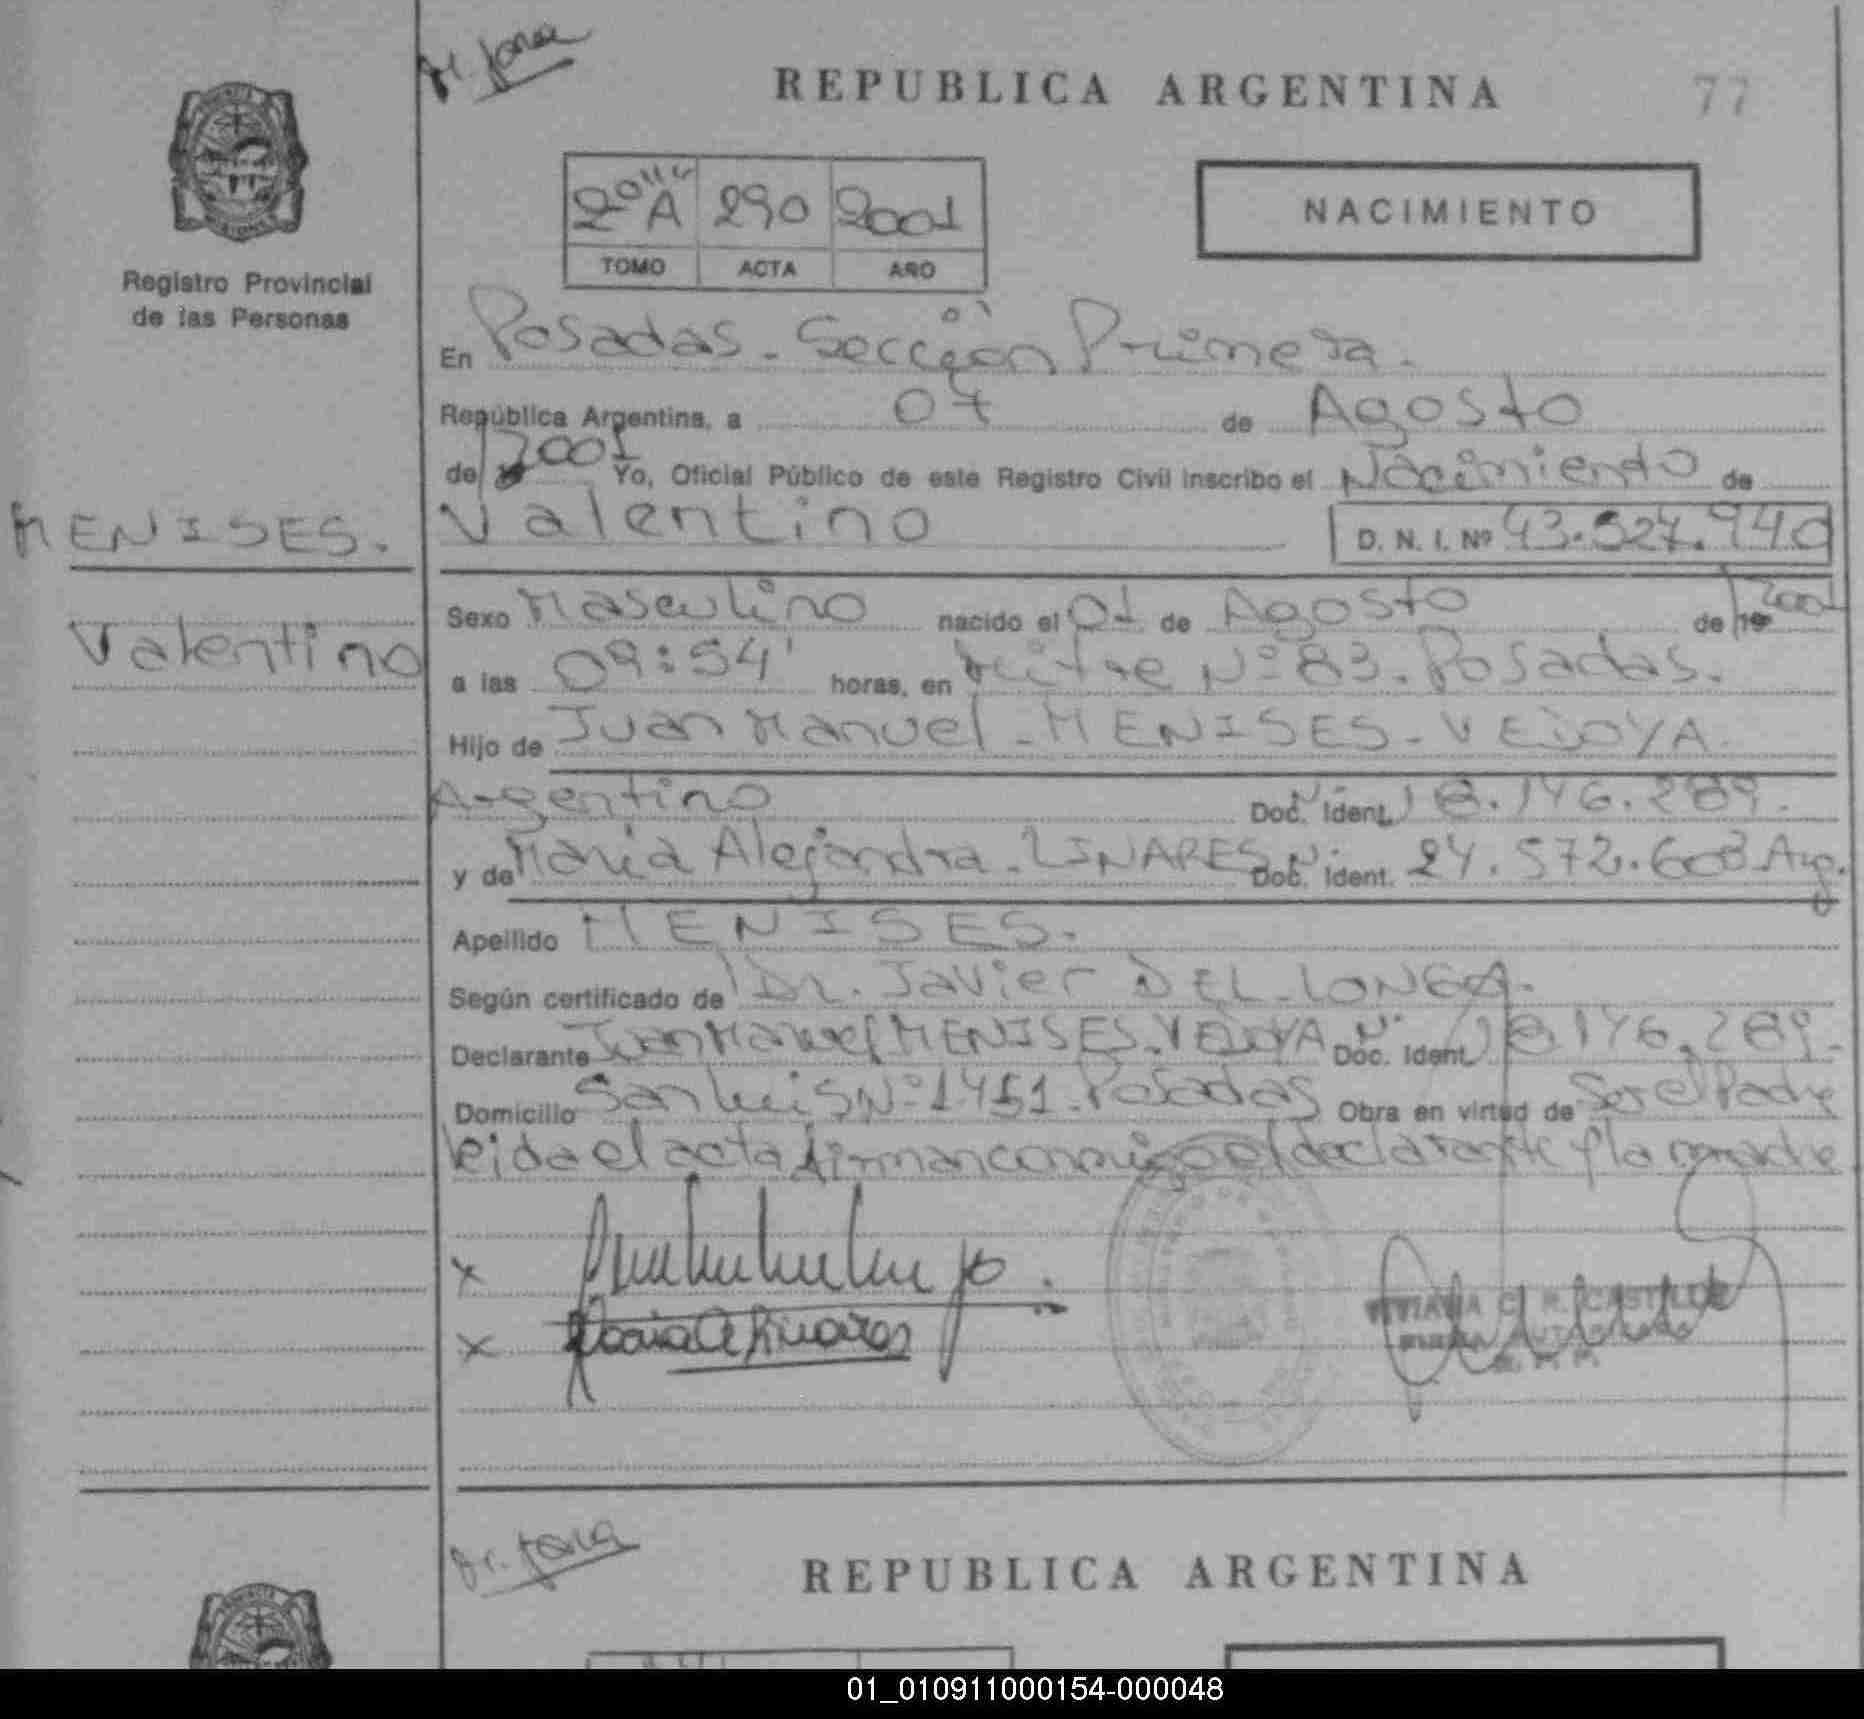 REPUBLICA ARGENTINA 77
2º A 290 2001
TOMO ACTA AÑO
NACIMIENTO
Registro Provincial
de las Personas
En Posadas - Sección Primera.
República Argentina, a 07 de Agosto
de 2001 Yo, Oficial Público de este Registro Civil inscribo el Nacimiento de
MENISES.
Valentino D. N. I. Nº 43.527.940
Valentino
Sexo Masculino nacido el 01 de Agosto de 2001
a las 09:54' horas, en Mitre Nº 83. Posadas.
Hijo de Juan Manuel - MENISES - VEJOYA.
Argentino Doc. Ident. 18.146.289.
y de María Alejandra - LINARES Doc. Ident. 24.572.608 Arg.
Apellido MENISES.
Según certificado de Dr. Javier DEL LONGA.
Declarante Juan Manuel MENISES. VEJOYA Doc. Ident. 18.146.289.
Domicilio San Luis Nº 1451 - Posadas Obra en virtud de Ser el Padre
leida el acta firman conmigo el declarante y la madre
x
x
VIVIANA C. R. CASTILLO
REPUBLICA ARGENTINA
01_010911000154-000048